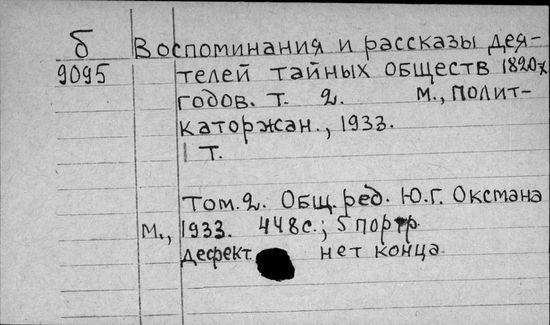 б Воспоминания и рассказы дея-
9095 телей тайных обществ 1820х
годов. Т. 2. М., Полит-
каторжан., 1933.
1 т.
Том. 2. Общ. ред. Ю.Г. Оксмана
М., 1933. 448с.; 5 портр.
дефект. нет конца.